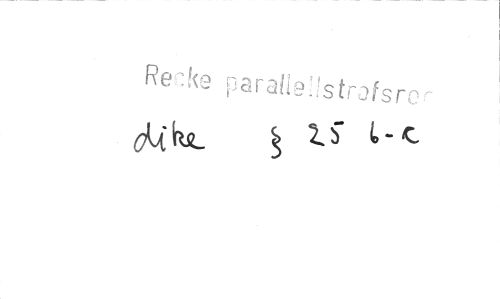 Recke parallellstrofsror
dike § 25 b-c